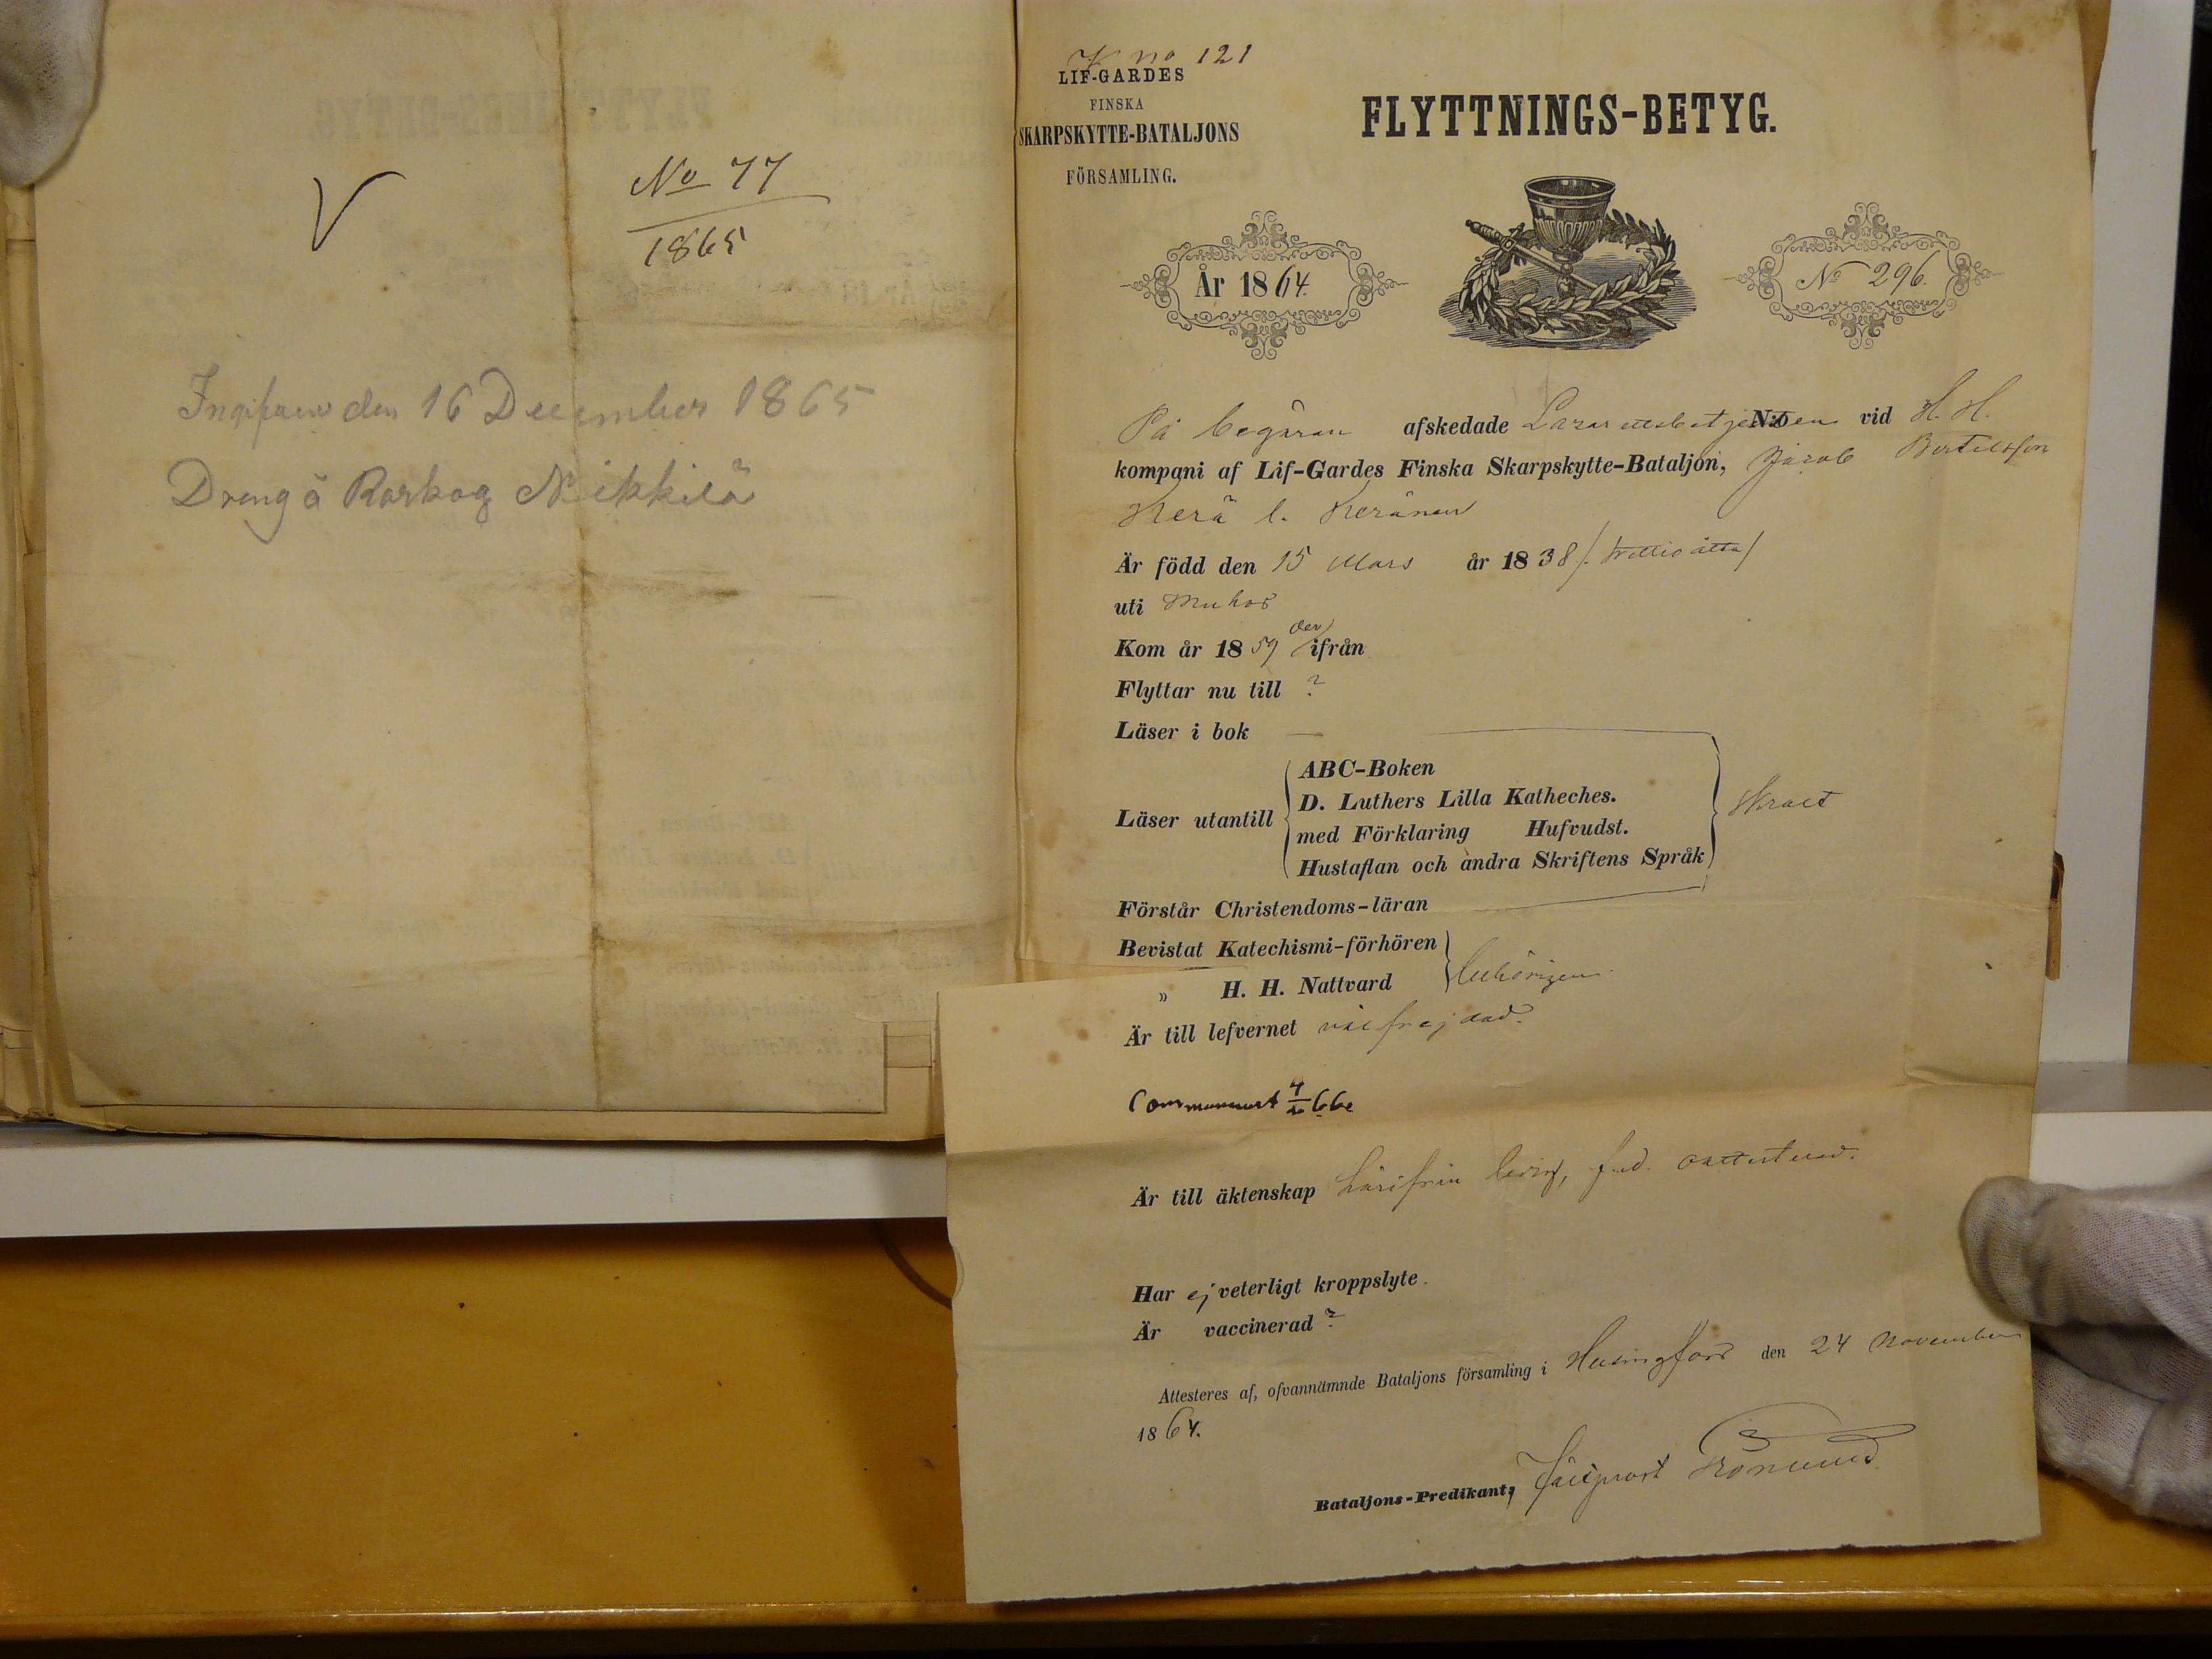 V
No 77
1865
Ingifven den 16 December 1865
Dreng å Rorkog Nikkilä
K no 121
LIF-GARDES
FINSKA
SKARPSKYTTE-BATALJONS
FÖRSAMLING.
FLYTTNINGS-BETYG.
År 1864.
No 296.
På begäran afskedade Lazarettsbetjenten N:o vid H. H.
kompani af Lif-Gardes Finska Skarpskytte-Bataljon, Jacob Bertelsson
Kerä l. Keränen
Är född den 15 Mars år 1838 /: trettio åtta /
uti Muhos
Kom år 1859 der ifrån
Flyttar nu till ?
Läser i bok —
Läser utantill
ABC-Boken
D. Luthers Lilla Katheches.
med Förklaring Hufvudst.
Hustaflan och andra Skriftens Språk
Förstår Christendoms-läran
Bevistat Katechismi-förhören
" H. H. Nattvard behörigen.
Är till lefvernet välfrejdad.
4
66
Är till äktenskap härifrån ledig,
Har ej veterligt kroppslyte.
Är vaccinerad ?
Attesteres af, ofvannämnde Bataljons församling i Helsingfors den 24 November
1864.
Bataljons-Predikant,